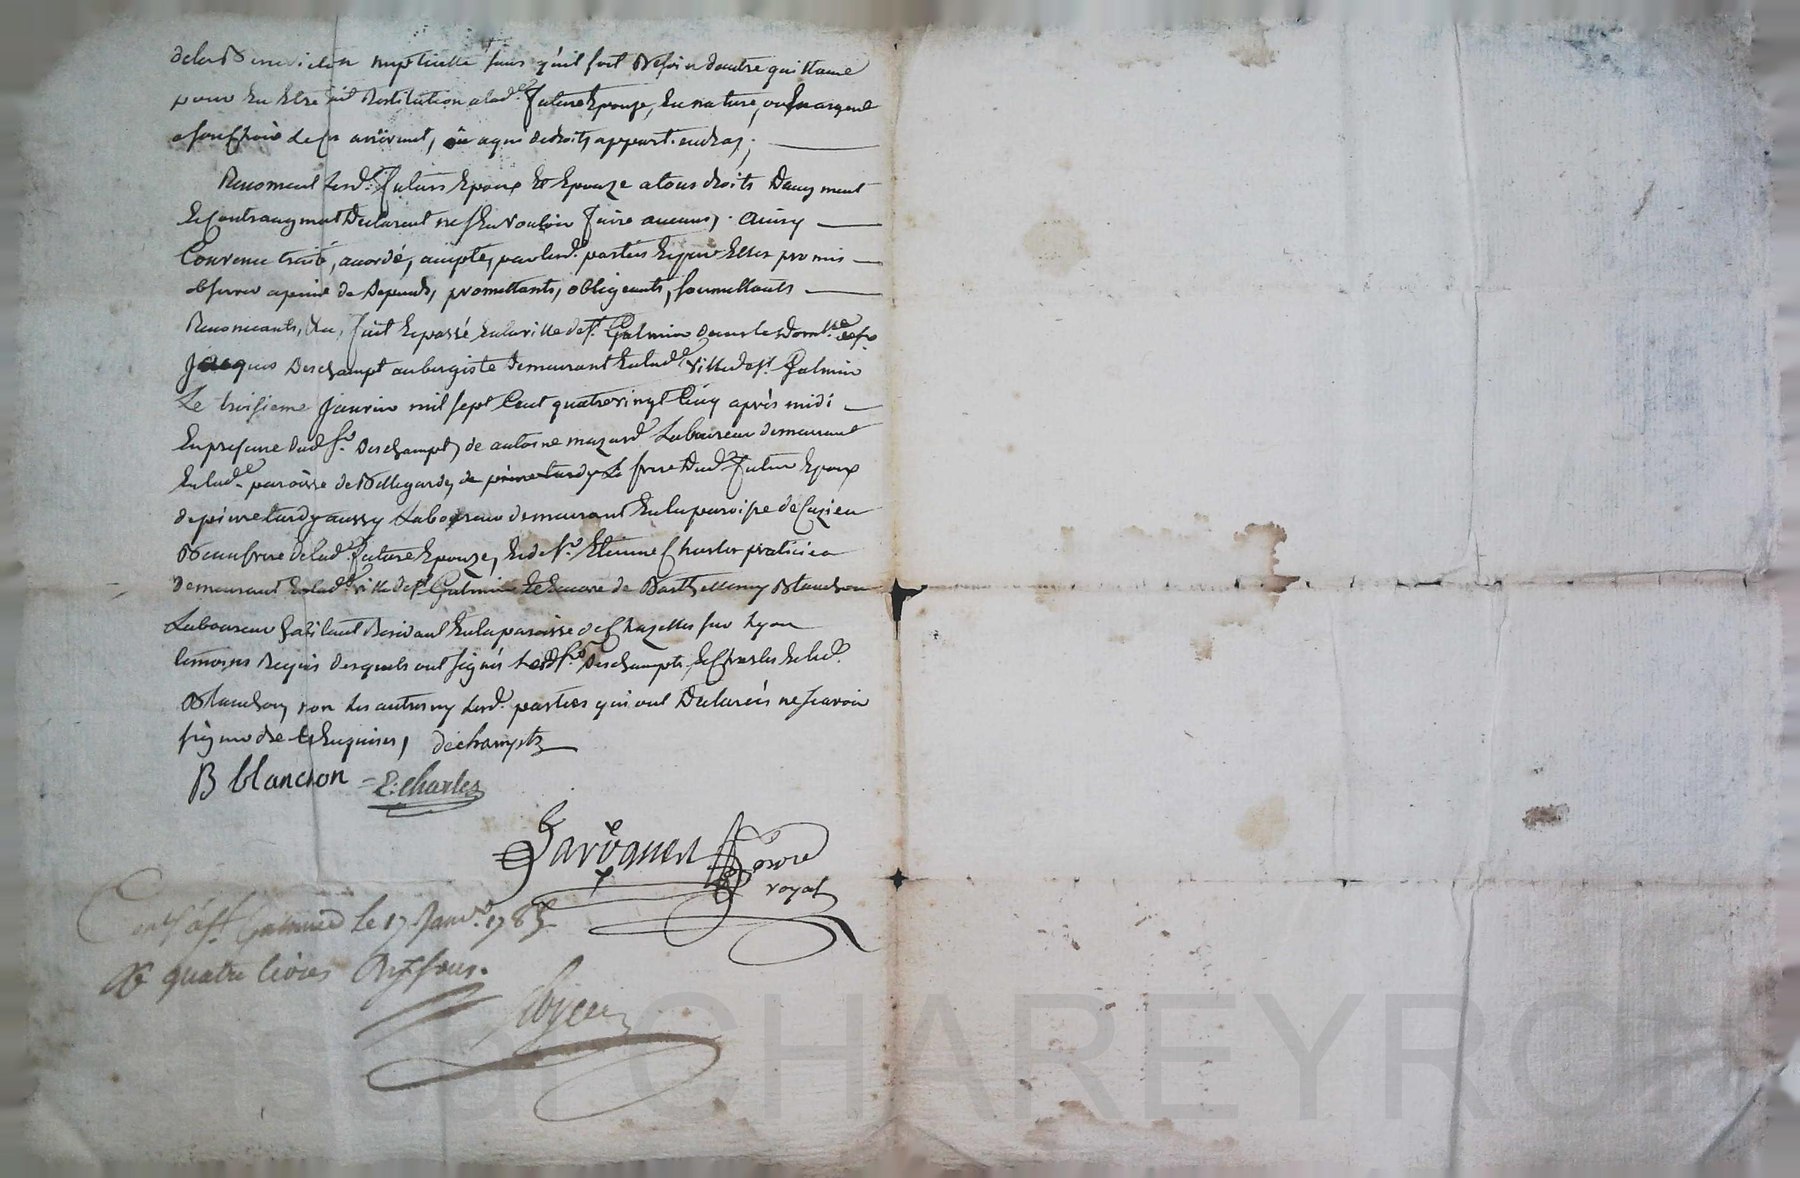 dela Benediction nuptialle sans qu'il soit Besoin dautre quittance
pour En Etre fait Restitution a lad.e future Epouze, En nature, ou En argent
a son choix le cas arrivant, ou a qui de droits appartiendras;
Renoncent lesd. futurs Epoux Et Epouze a tous droits Daugment
Et Contraugment Declarent ne s'En vouloir faire aucuns, Ainsy
Convenu traité, acordé, accepté, par lesd. parties Et par Elles promis
observer a peine de Depends, promettants, obligeants, soumettants
Renonceants, &a, fait Et passé En la ville de St. Galmier dans le Domicile de sr.
Jacques Deschampt aubergiste demeurant En lad.e ville de St. Galmier
Le troisieme Janvier mil sept Cent quatrevingt Cinq après midi
En presence dud. sr. Deschampt, de antoine mazard Laboureur demeurant
En lad.e paroisse de Bellegarde, de pierre tardy Le frere Dud. futur Epoux
de pierre tardy aussy Laboureur demeurant En la paroisse de Cuzieu
Beaufrere de lad.e future Epouze, Et de Sr. Etienne Charles praticien
demeurant En lad.e ville de St. Galmier Et Encore de Barthellemy Blanchon
Laboureur habitant Residant En la paroisse de Chazelles sur Lyon
temoins Requis desquels ont signés lesd. srs. Deschampts, Et Charles Et led.
Blanchon, non les autres ny lesd. parties qui ont Declarées ne scavoir
signer de ce Enquises, dechampts
B blancion E. charles
Nore
royal
Conté a St. Galmier le 17 Janv. 1785
R quatre livres sous.
CHAREYRON